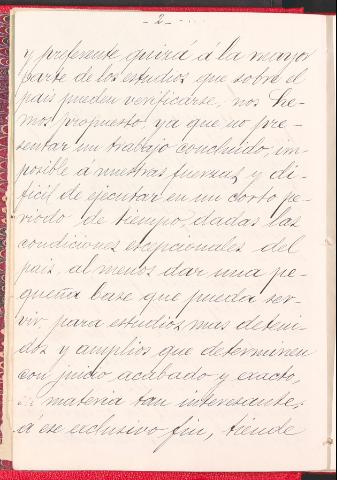 - 2 -
y preferente, guirá á la mayor
parte de los estudios que sobre el
pais pueden verificarse, nos he-
mos propuesto, ya que no pre-
sentar un trabajo concluido, im-
posible á nuestras fuerzas, y di-
ficil de ejecutar en un corto pe-
riodo de tiempo, dadas las
condiciones escepcionales del
pais, al menos dar una pe-
queña base que pueda ser-
vir para estudios mas deteni-
dos y amplios que determinen
con juido acabado y exacto,
en materia tan interesante;
á ese exclusivo fin, tiende